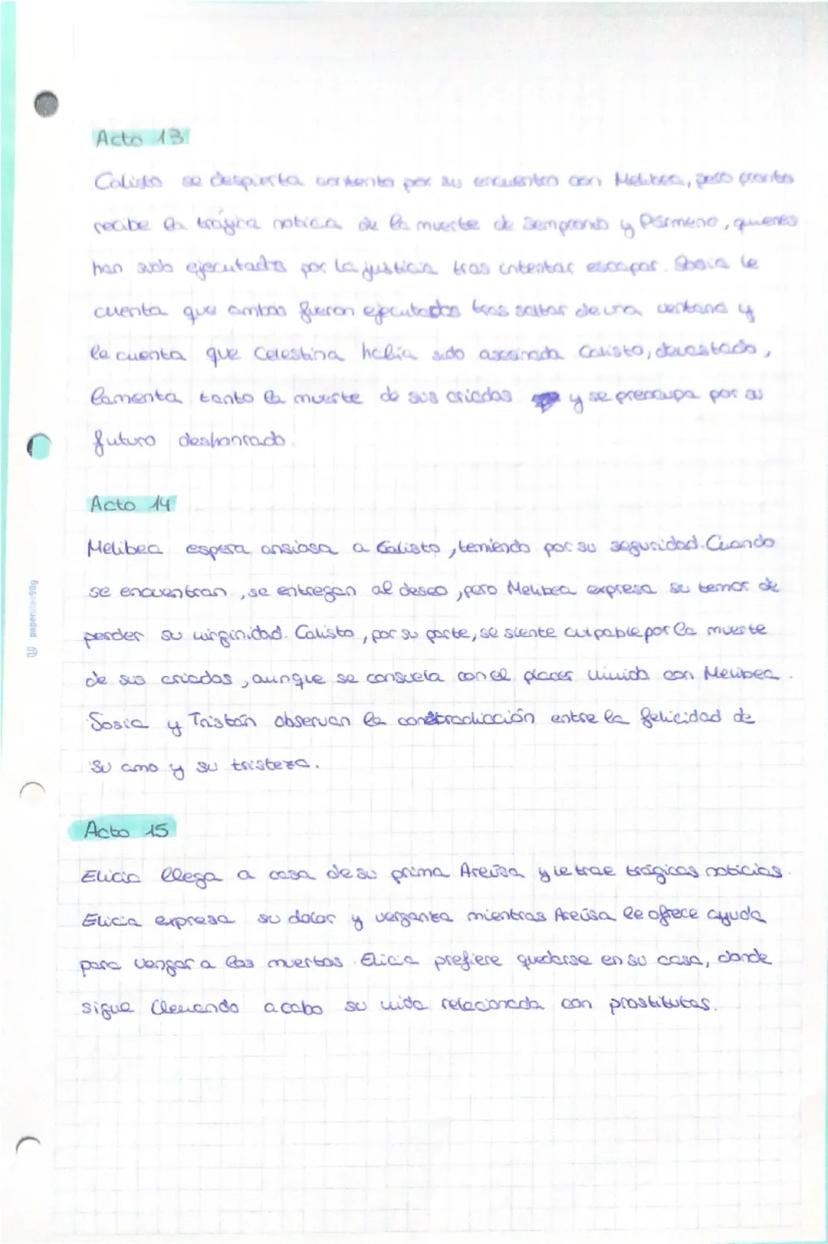 Acto 13
Calisto se despierta contento por su encuentro con Melibea, pero pronto
recibe la trágica noticia de la muerte de Sempronio y Pármeno, quienes
han sido ejecutados por la justicia tras intentar escapar. Sosia le
cuenta que ambos fueron ejecutados tras saltar de una ventana y
le cuenta que Celestina había sido asesinada. Calisto, devastado,
lamenta tanto la muerte de sus criados y se preocupa por su
futuro deshonrado.
Acto 14
Melibea espera ansiosa a Calisto, temiendo por su seguridad. Cuando
se encuentran, se entregan al deseo, pero Melibea expresa su temor de
perder su virginidad. Calisto, por su parte, se siente culpable por la muerte
de sus criados, aunque se consuela con el placer vivido con Melibea.
Sosia y Tristán observan la contradicción entre la felicidad de
su amo y su tristeza.
Acto 15
Elicia llega a casa de su prima Areúsa y le trae trágicas noticias.
Elicia expresa su dolor y venganza mientras Areúsa le ofrece ayuda
para vengar a los muertos. Elicia prefiere quedarse en su casa, donde
sigue llevando acabo su vida relacionada con prostitutas.